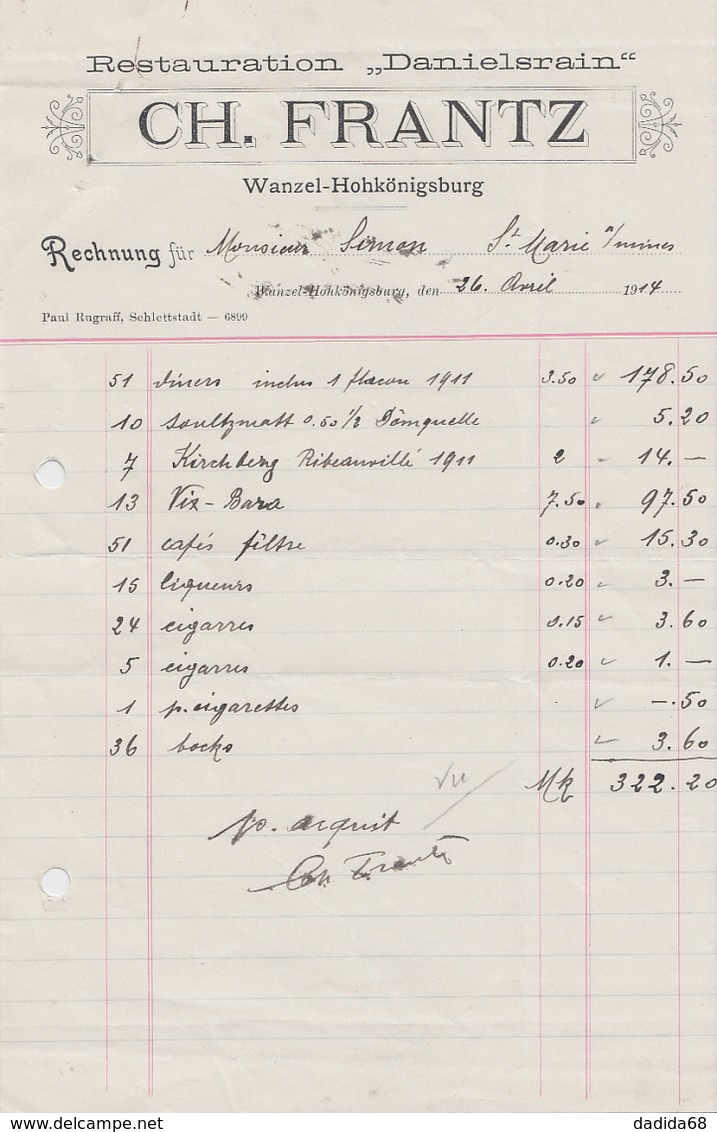 Restauration „Danielsrain“
CH. FRANTZ
Wanzel-Hohkönigsburg
Rechnung für Monsieur Simon St. Marie a/mines
Wanzel-Hohkönigsburg, den 26. Avril 1914
Paul Rugraff, Schlettstadt — 6899
51 diners inclus 1 flacon 1911 3.50 178.50
10 Soultzmatt 0.50 1/2 Dömquelle 5.20
7 Kirchberg Ribeauvillé 1911 2 14.—
13 Vix-Bara 7.50 97.50
51 cafés filtre 0.30 15.30
15 liqueurs 0.20 3.—
24 cigarres 0.15 3.60
5 cigarres 0.20 1.—
1 p. cigarettes —.50
36 bocks 3.60
Mk 322.20
Vu
p. acquit
Ch. Frantz
dadida68